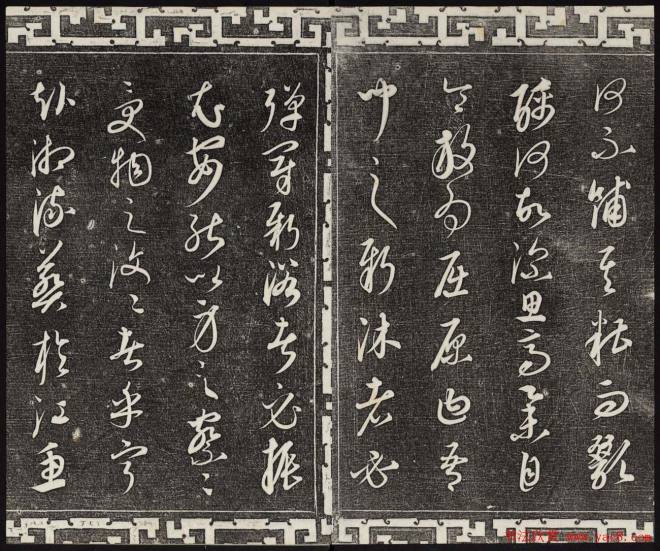 何不餔其糟而歠
醨何故深思高舉自
令放為屈原曰吾
聞之新沐者必
彈冠新浴者必振
衣安能以身之察〻
受物之汶〻者乎寧
赴湘流葬於江魚
书法欣赏 www.yac8.com